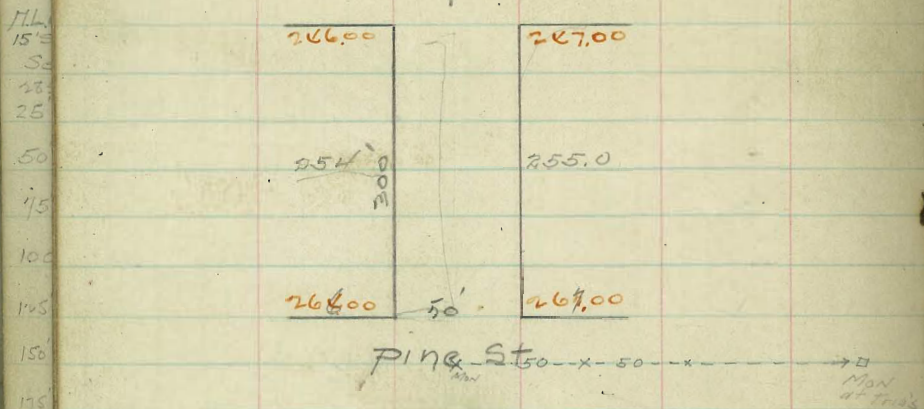 M.L.
15'
50
75
100
125
150'
175'
246.00 247.00
254 300 255.0
266.00 50' 267.00
Pine St
Mon 50 --x-- 50 --x--
Mon
at